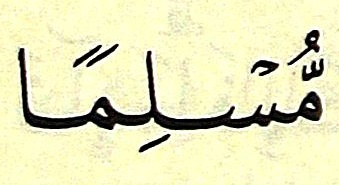 مُّسۡلِمًا